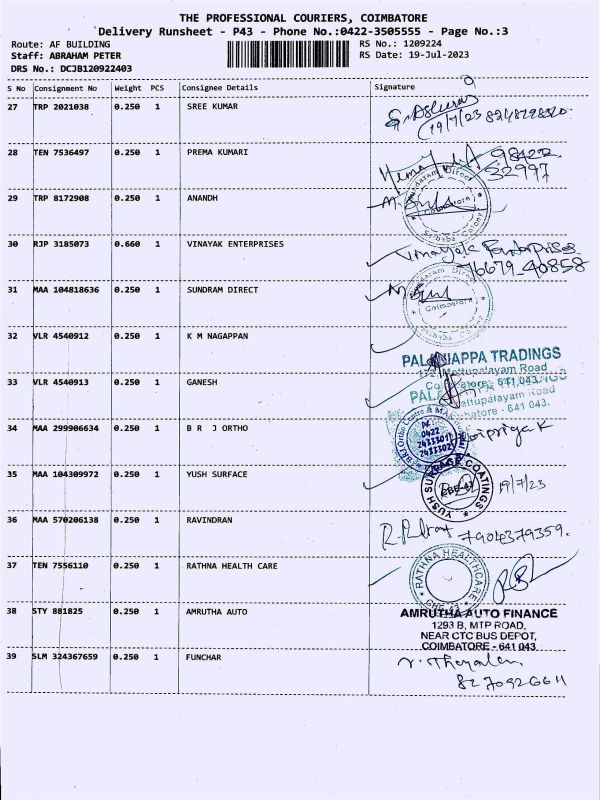 THE PROFESSIONAL COURIERS, COIMBATORE
Delivery Runsheet - P43 - Phone No.:0422-3505555 - Page No.:3
Route: AF BUILDING
RS No.: 1209224
Staff: ABRAHAM PETER
RS Date: 19-Jul-2023
DRS No.: DCJB120922403
S No Consignment No Weight PCS Consignee Details Signature
27 TRP 2021038 0.250 1 SREE KUMAR
19/7/23
28 TEN 7536497 0.250 1 PREMA KUMARI
98422
32997
29 TRP 8172908 0.250 1 ANANDH
Sundaram Direct
Coimbatore
Saibaba Colony
30 RJP 3185073 0.660 1 VINAYAK ENTERPRISES
Vinayak Enterprises
76679 40858
31 MAA 104818636 0.250 1 SUNDRAM DIRECT
32 VLR 4540912 0.250 1 K M NAGAPPAN
PALANIAPPA TRADINGS
Mettupalayam Road
33 VLR 4540913 0.250 1 GANESH
Mettupalayam Road
Coimbatore - 641 043.
34 MAA 299906634 0.250 1 B R J ORTHO
0422
35 MAA 104309972 0.250 1 YUSH SURFACE
YUSH SURFACE COATINGS
19/7/23
36 MAA 570206138 0.250 1 RAVINDRAN
7904379359.
37 TEN 7556110 0.250 1 RATHNA HEALTH CARE
RATHNA HEALTHCARE
38 STY 881825 0.250 1 AMRUTHA AUTO
AMRUTHA AUTO FINANCE
1293 B, MTP ROAD,
NEAR CTC BUS DEPOT,
COIMBATORE - 641 043.
39 SLM 324367659 0.250 1 FUNCHAR